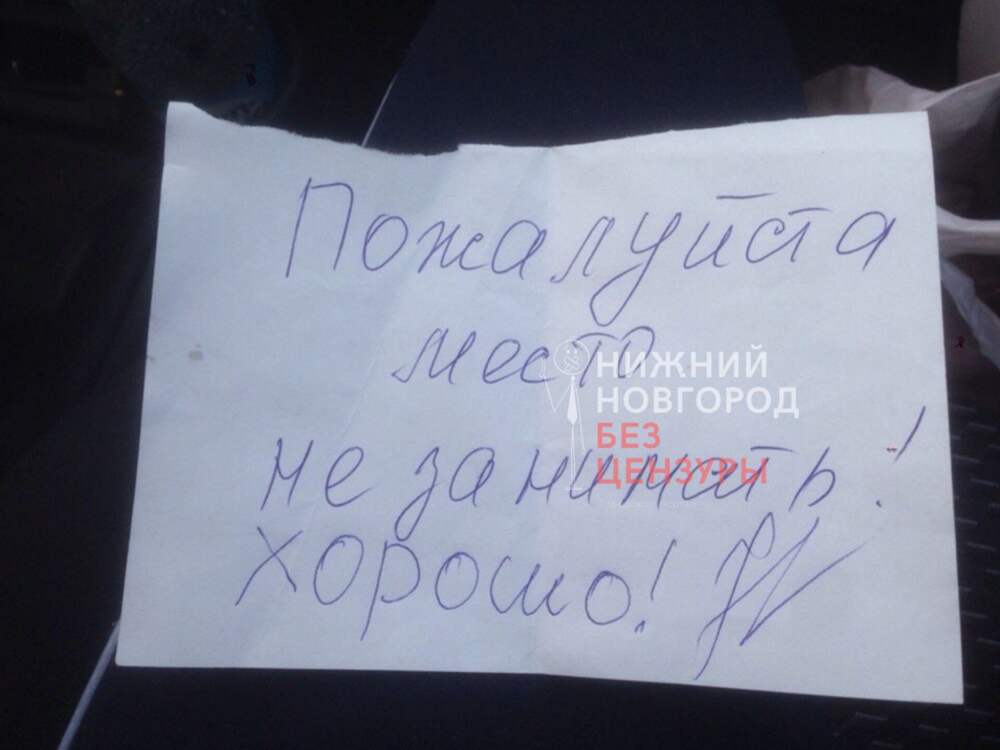 Пожалуйста
место
НИЖНИЙ
НОВГОРОД
БЕЗ
ЦЕНЗУРЫ
не занимать!
хорошо!